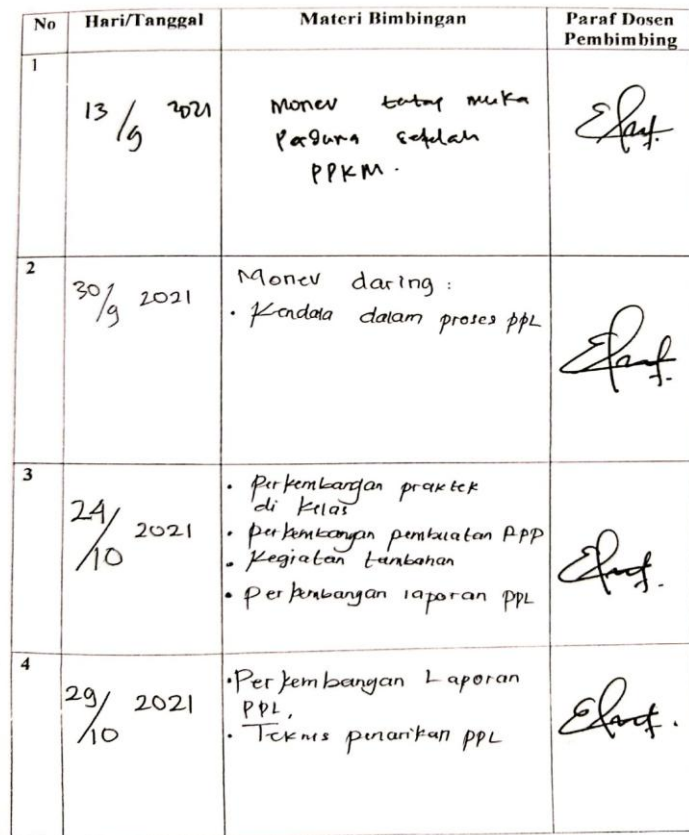 No Hari/Tanggal Materi Bimbingan Paraf Dosen
Pembimbing
1
13/9 2021
Monev tatap muka
Perdana setelah
PPKM.
2
30/9 2021
Monev daring:
• Kendala dalam proses ppL
3
24/10 2021
• Perkembangan praktek
di kelas
• perkembangan pembuatan RPP
• Kegiatan tambahan
• Perkembangan laporan PPL
4
29/10 2021
• Perkembangan Laporan
PPL,
• Teknis penarikan PPL